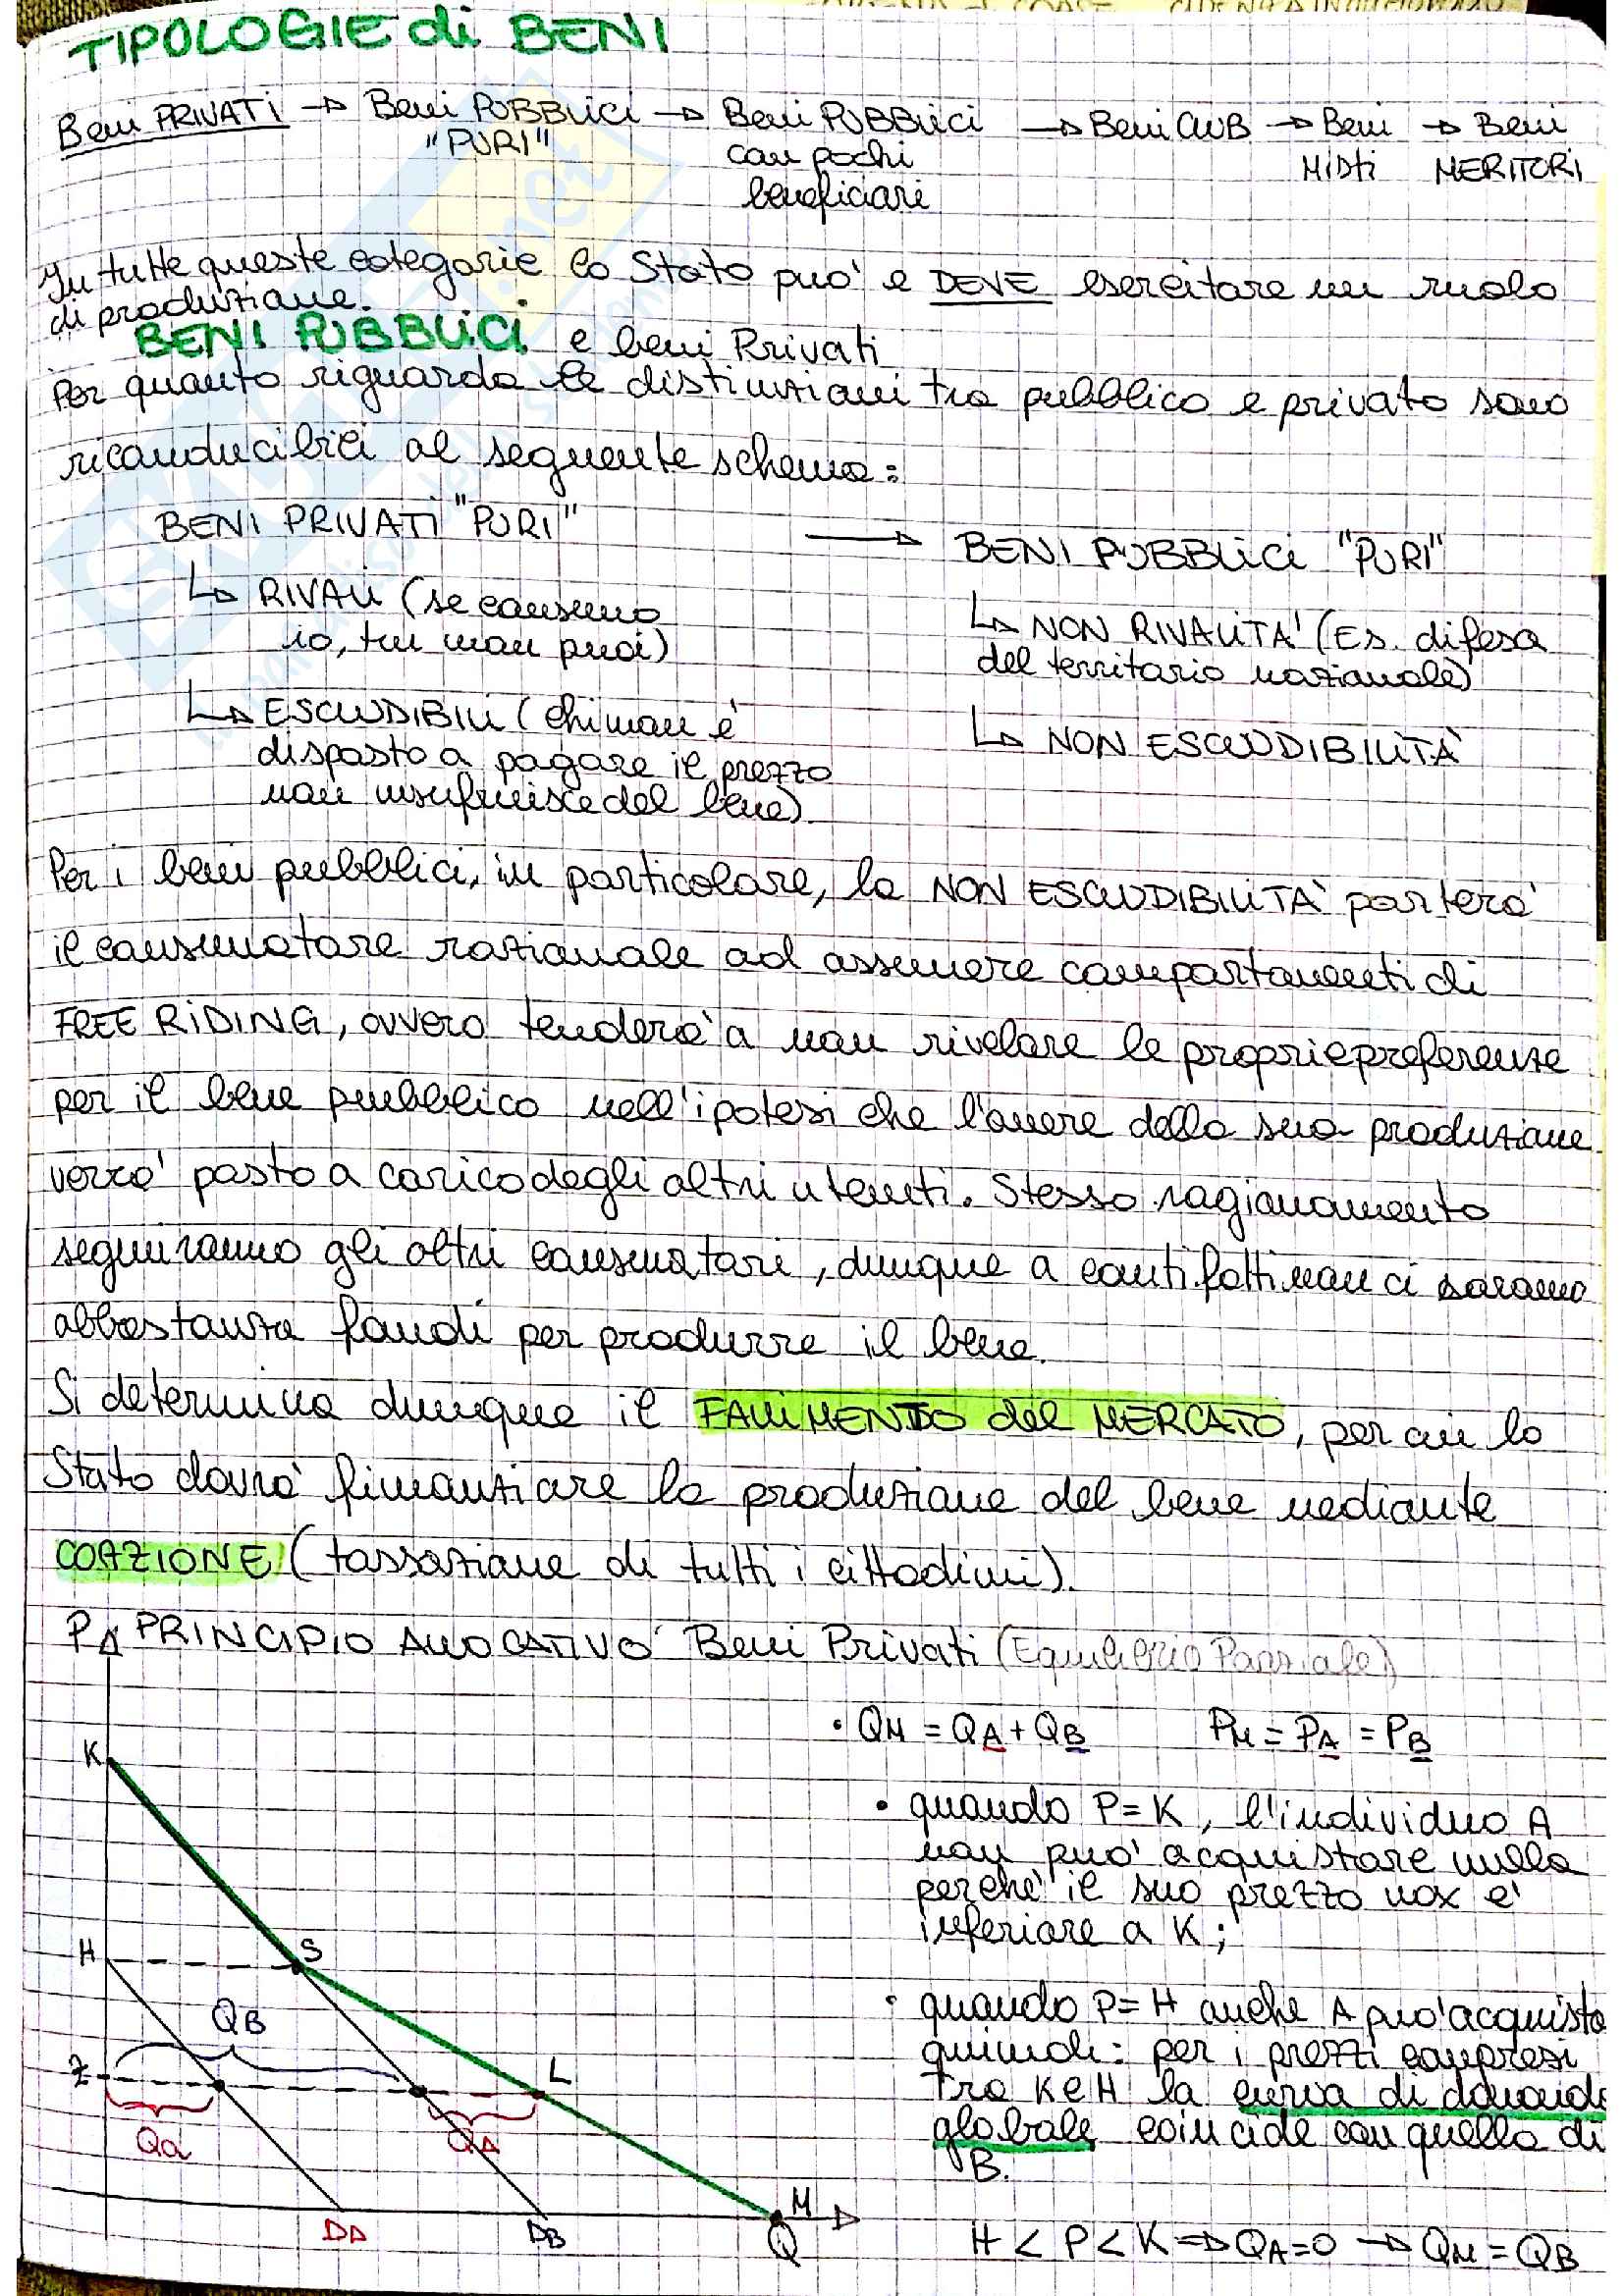 TIPOLOGIE di BENI
Beni PRIVATI → Beni PUBBLICI → Beni PUBBLICI → Beni CLUB → Beni → Beni
"PURI" con pochi MISTI MERITORI
beneficiari
In tutte queste categorie lo Stato può e DEVE esercitare un ruolo
di produzione.
BENI PUBBLICI e beni Privati
Per quanto riguarda le distinzioni tra pubblico e privato sono
riconducibili al seguente schema:
BENI PRIVATI "PURI" → BENI PUBBLICI "PURI"
↳ RIVALI (se consumo
io, tu non puoi)
↳ NON RIVALITA' (Es. difesa
del territorio nazionale)
↳ ESCLUDIBILI (chi non è
disposto a pagare il prezzo
non usufruisce del bene).
↳ NON ESCLUDIBILITA'
Per i beni pubblici, in particolare, la NON ESCLUDIBILITA' porterà
il consumatore razionale ad assumere comportamenti di
FREE RIDING, ovvero tenderà a non rivelare le proprie preferenze
per il bene pubblico nell'ipotesi che l'onere della sua produzione
verrà posto a carico degli altri utenti. Stesso ragionamento
seguiranno gli altri consumatori, dunque a conti fatti non ci saranno
abbastanza fondi per produrre il bene.
Si determina dunque il FALLIMENTO del MERCATO, per cui lo
Stato dovrà finanziare la produzione del bene mediante
COAZIONE (tassazione di tutti i cittadini).
P PRINCIPIO ALLOCATIVO Beni Privati (Equilibrio Parziale)
• QM = QA + QB PM = PA = PB
K
• quando P=K, l'individuo A
non può acquistare nulla
perché il suo prezzo max è
inferiore a K;
H S
• quando P=H anche A può acquista
quindi: per i prezzi compresi
tra K e H la curva di domanda
globale coincide con quella di
B.
QB
Z L
Qa QA
M
DA DB Q
H < P < K ⇒ QA=0 → QM = QB